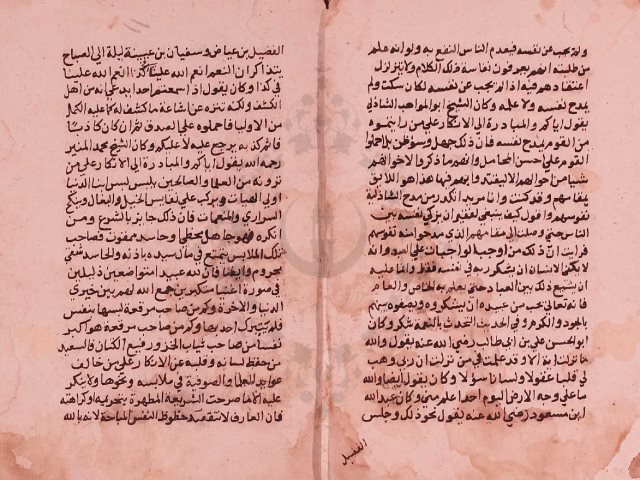 ولم يجب عن نفسه فيعدم الناس النفع به ولو انه علم
من طلبته انهم يعرفون نفاسة ذلك الكلام ولا يتزلزل
اعتقادهم فيه اذا لم يجب عن نفسه لكان سكت ولم
يمدح لنفسه ولا علمه وكان الشيخ ابو المواهب الشاذلي
يقول اياكم والمبادرة الى الانكار على من رايتموه
من القوم يمدح نفسه فان ذلك جهل وسوء ظن بل احملوا
القوم على احسن المحامل وانهم ما ذكروا لاخوانهم
شيا من احوالهم الا ليقتد وا بهم فيها هذا هو اللائق
بمقامهم وقد كنت وانا مريد انكر من مدح المشايخ
نفوسهم واقول كيف ينبغي لفقير ان يزكي نفسه بين
الناس حتى وصلنا الى مقامهم الذي مدحوا منه نفوسهم
فرايت ان ذلك من اوجب الواجبات على العبد وانه
لا يكفي الانسان ان يشكر ربه في نفسه فقط وانما عليه
ان يشيع ذلك بين العباد حتى يعلم به الخاص والعام
فانه تعالى يحب من عبيده ان يشكروه ويصفوه بينهم
بالجود والكرم وفي الحديث التحدث بالنعمة شكر وكان
ابو الحسن علي بن ابي طالب رضي الله عنه يقول والله
ما نزلت اية الا وقد علمت في من نزلت ان ربي وهب
لي قلبا عقولا ولسانا سؤلا وكان يقول ايضا والله
ما على وجه الارض اليوم احدا علم مني وكان عبد الله
ابن مسعود رضي الله عنه يقول نحو ذلك وجلس
الفضيل
الفضيل بن عياض وسفيان بن عيينة ليلة الى الصباح
يتذاكران النعم انعم الله علينا في كذا انعم الله علينا
في كذا وكان يقول اذا سمعتم احدا يدعي انه من اهل
الكشف ولكنه تنزه عن اشاعة ما كشف له كما عليه الكمل
من الاوليا فاحملوه على الصدق ثم ان كان كاذبا
فاثم كذبه يرجع عليه لا عليكم وكان الشيخ محمد المنير
رحمه الله يقول اياكم والمبادرة الى الانكار على من
ترونه من العلما والصالحين يلبس لبس ابنا الدنيا
اولي الهيات ويركب على نفايس الخيل والبغال وينكح
السراري والمنعمات فان ذلك جايز بالشرع ومن
انكره فهو جاهل مخطي او حاسد ممقوت فصاحب
تلك الملابس يتمتع في مال سيده باذنه والحاسد شقي
محروم وايضا فان لله عبيد امتواضعين ذليلين
في صورة اغنيا متكبرين جمع الله لهم بين خيري
الدنيا والاخرة وكم من صاحب مرقعة لبسها بنفس
فلم يتبرك احد بها وكم من صاحب مرقعة هو اكبر
نفسا من صاحب ثياب الخز ورفيع الكتان فالسعيد
من حفظ لسانه وقلبه عن الانكار على من خالف
عوايد العلما والصوفية في ملابسه ونحوها ولا ينكر
عليه الا ما صرحت الشريعة المطهرة بتحريمه او كراهته
فان العارف لا تنقصه حظوظ النفس المباحة لانه بالله